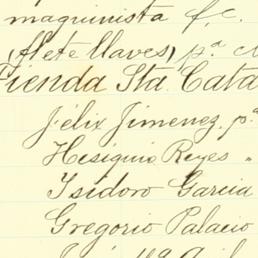 maquinista f.c.
(flete llaves) pª
Tienda Sta. Cata
Félix Jimenez, pª
Hesiquio Reyes "
Isidoro Garcia
Gregorio Palacio